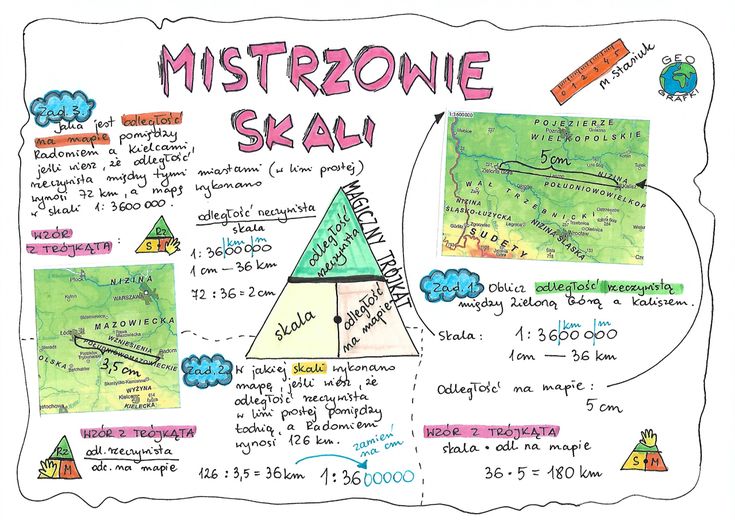 MISTRZOWIE
SKALI
0 1 2 3 4 5
m.stasiuk
GEO
GRAFKI
Zad.3.
Jaka jest odległość
na mapie pomiędzy
Radomiem a Kielcami,
jeśli wiesz, że odległość
rzeczywista między tymi miastami (w linii prostej)
wynosi 72 km, a mapę wykonano
w skali 1:3600000.
WZÓR
Z TRÓJKĄTA:
S
odległość rzeczywista
skala
km m
1:3600000
1cm — 36 km
72 : 36 = 2cm
MAGICZNY TRÓJKĄT
odległość
rzeczywista
skala
odległość
na mapie
NIZINA
WARSZAWA
MAZOWIECKA
Łódź
WZNIESIENIA
POŁUDNIOWOMAZOWIECKIE
Radom
OLSKA
3,5 cm
Skarżysko-Kamienna
WYŻYNA
KIELECKA
WZÓR Z TRÓJKĄTA
Rz
S M
odl. rzeczywista
odc. na mapie
Zad.2.
W jakiej skali wykonano
mapę, jeśli wiesz, że
odległość rzeczywista
w linii prostej pomiędzy
Łodzią, a Radomiem
wynosi 126 km.
zamień
na cm
126 : 3,5 = 36km
1:3600000
1:3600000
POJEZIERZE
WIELKOPOLSKIE
5cm
Zielona Góra
NIZINA
POŁUDNIOWOWIELKOP
WAŁ TRZEBNICKI
NIZINA
ŚLĄSKO-ŁUŻYCKA
NIZINA ŚLĄSKA
SUDETY
Zad.1.
Oblicz odległość rzeczywistą
między Zieloną Górą a Kaliszem.
km m
Skala: 1:3600000
1cm — 36 km
Odległość na mapie:
5 cm
WZÓR Z TRÓJKĄTA
skala • odl. na mapie
36 • 5 = 180 km
S M